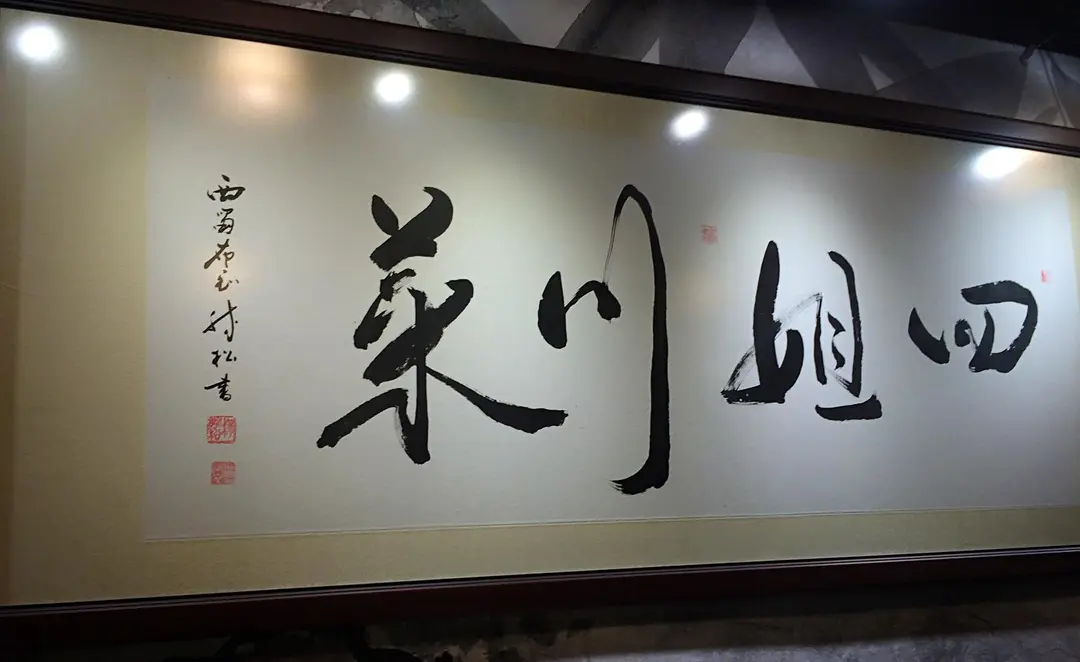 四姐川菜
西蜀布衣劲松书